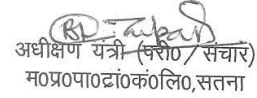 अधीक्षण यंत्री (परी०/संचार)
म०प्र०पा०ट्रां०कं०लि०,सतना